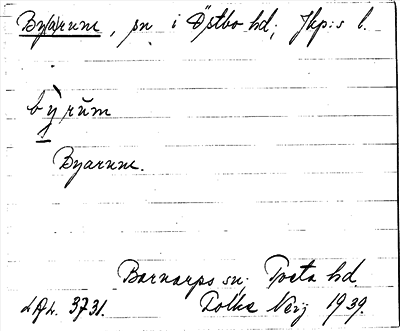 By(a)rum, sn i Östbo hd; Jkp:s l.
bỳrŭm
Byarum.
Barnarps sn; Tveta hd.
LAL. 3731.
Tolke Neij 1939.